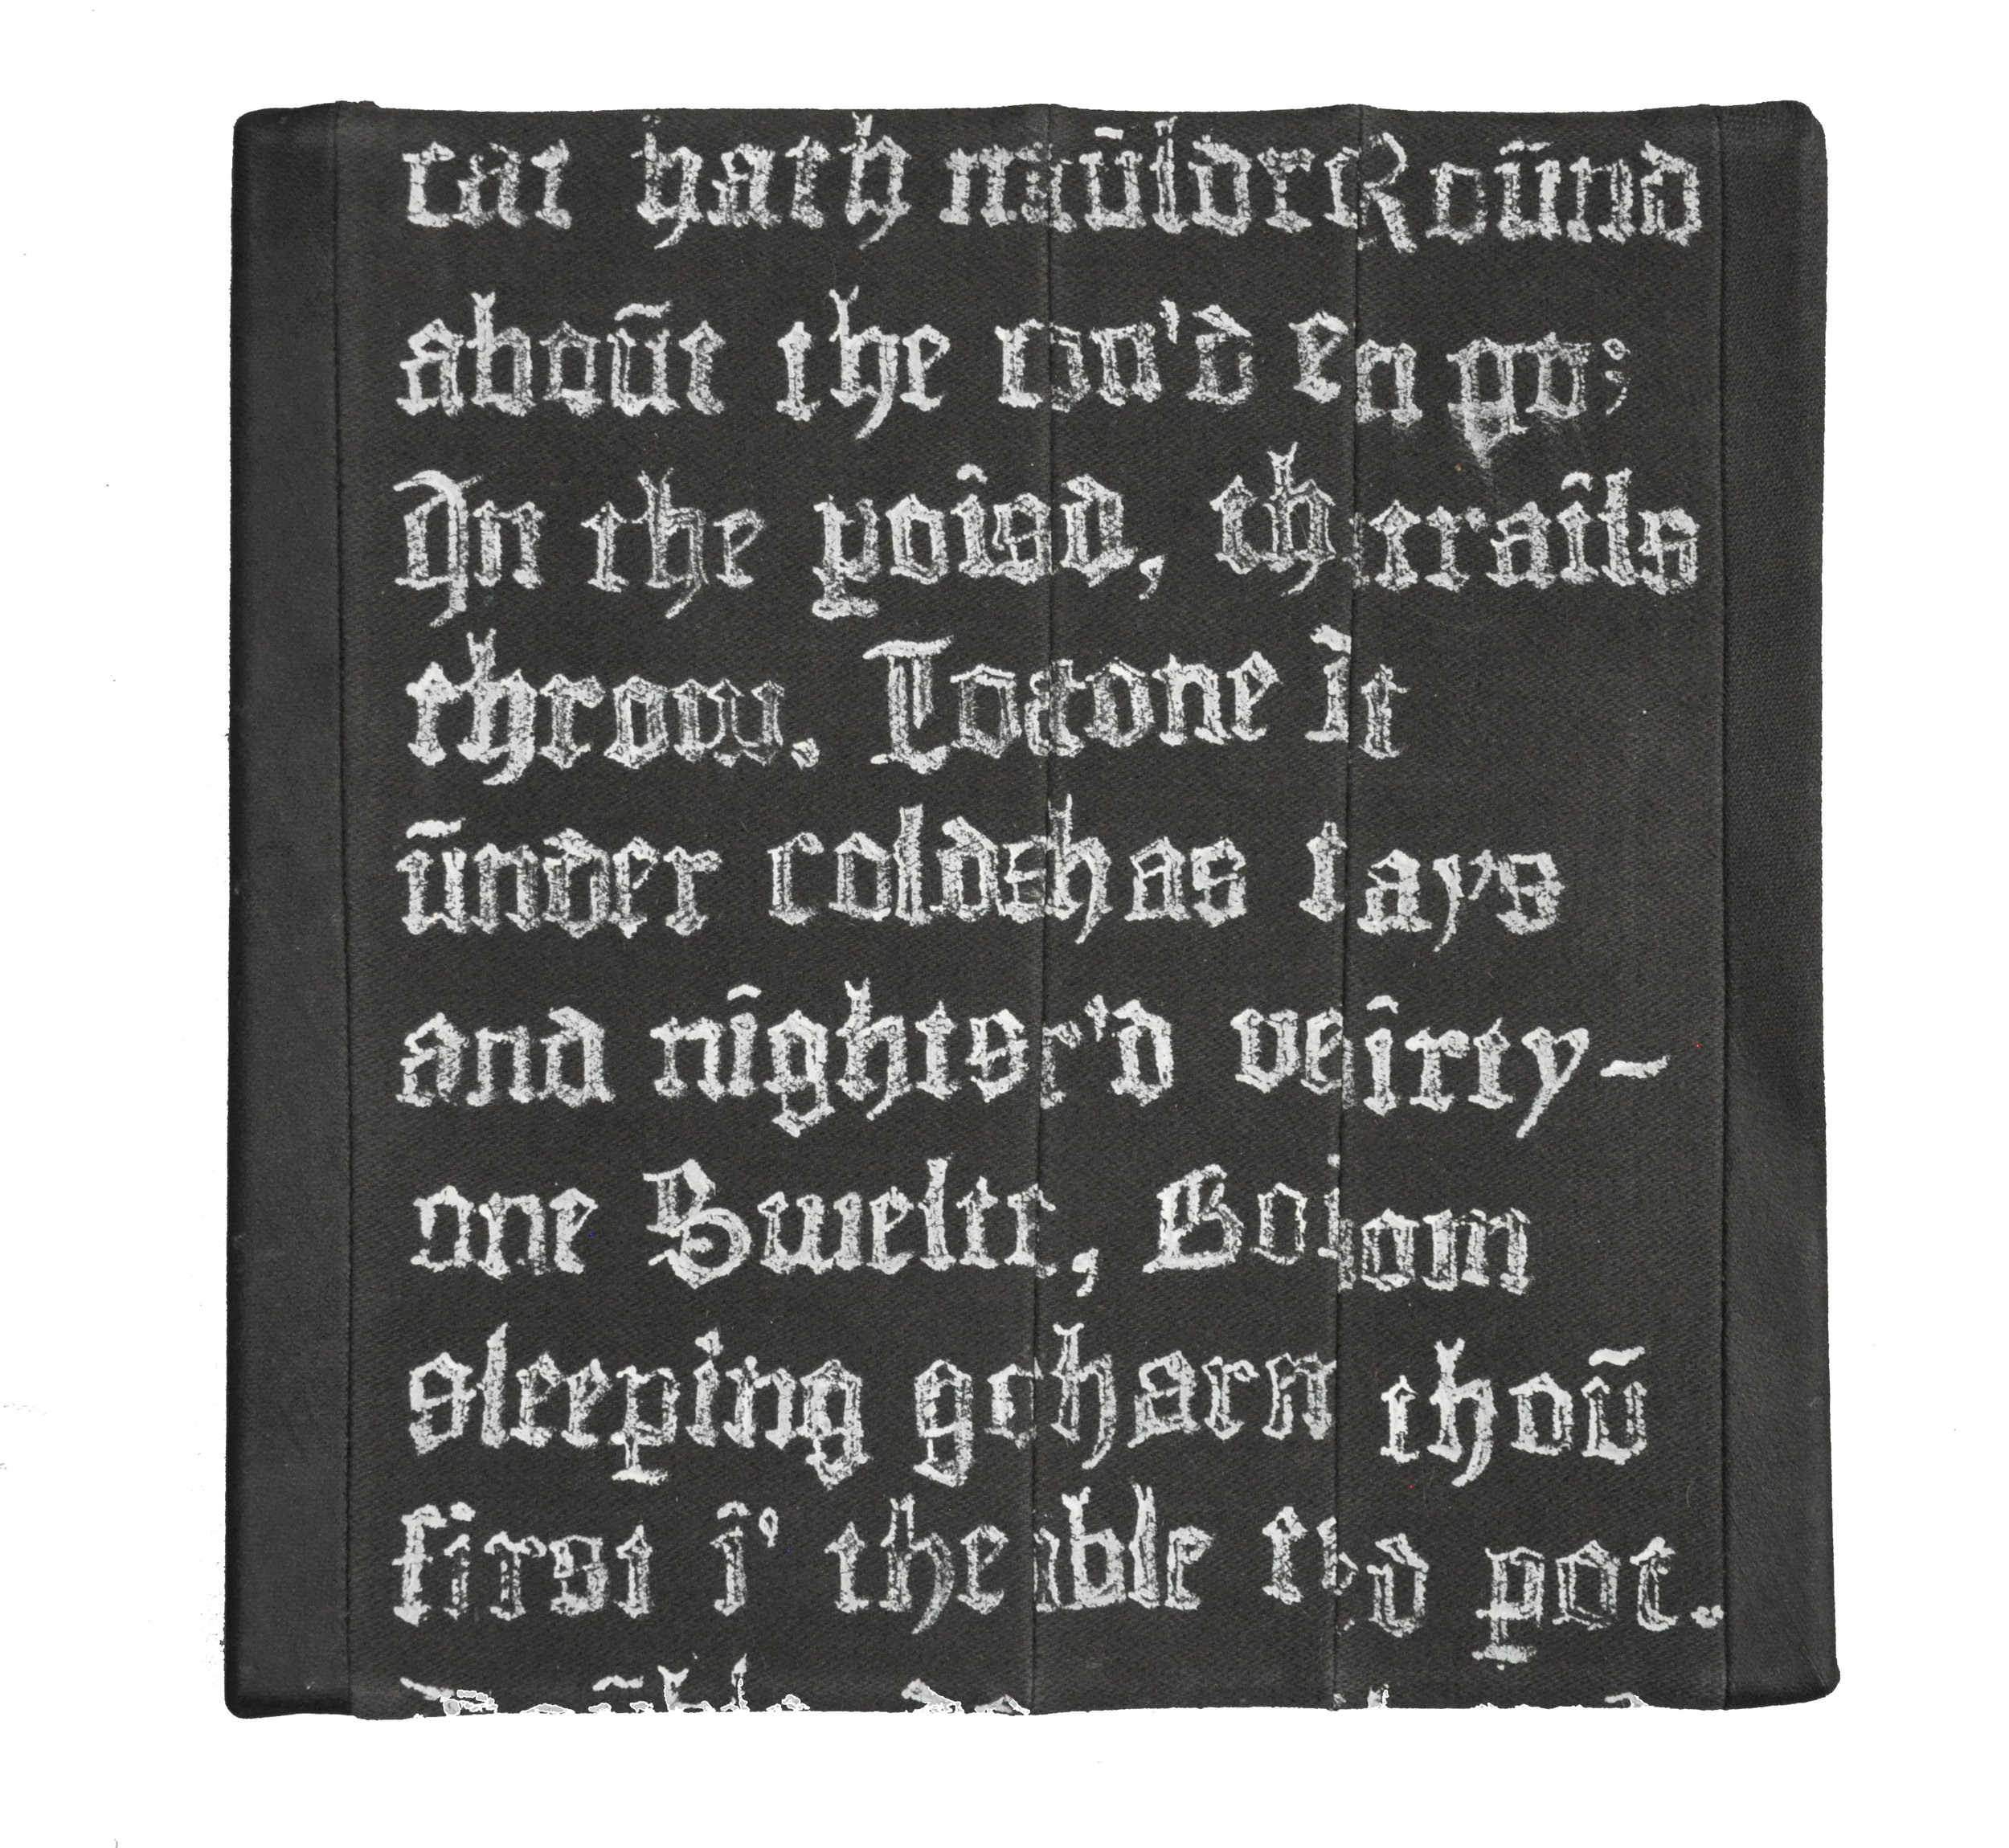 cat hath mūldrRoūnd
aboūt the con'd En go;
In the poisd, thtrails
throw. Toatone it
ūnder coldshas tays
and nightsr'd veirty-
one Sweltr, Boiom
sleeping gcharn thoū
first i' theible thd pot.